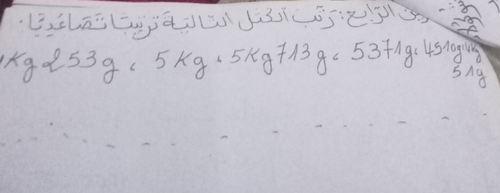 الرابع: رتب الكتل التالية ترتيبا تصاعديا.
Kg 253g، 5Kg، 5Kg713g، 5371g، 4510g، 4Kg
51g